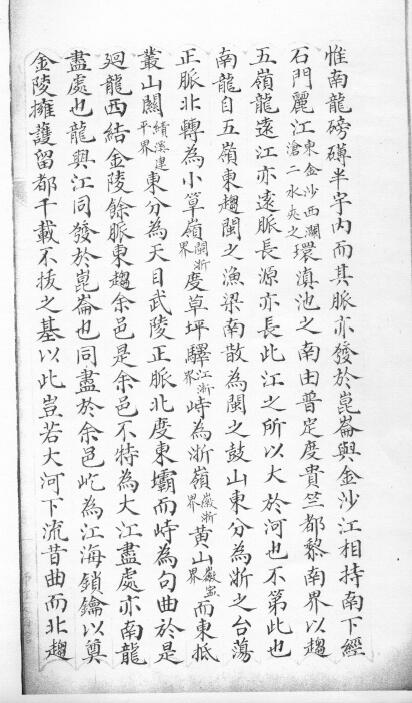 惟南龍磅礴半宇内而其脉亦發於崑崙與金沙江相持南下經
石門麗江東金沙西瀾滄二水夾之環滇池之南由普定度貴竺都黎南界以趨
五嶺龍遠江亦遠脉長源亦長此江之所以大於河也不第此也
南龍自五嶺東趨閩之漁梁南散為閩之鼓山東分為浙之台蕩
正脉北轉為小箄嶺閩浙界度草坪驛江浙界峙為浙嶺徽浙界黄山徽寧界而東抵
叢山關績溪建平界東分為天目武陵正脉北度東壩而峙為句曲於是
廻龍西結金陵餘脉東趨余邑是余邑不特為大江盡處亦南龍
盡處也龍與江同發於崑崙也同盡於余邑屹為江海鎖鑰以奠
金陵擁護留都千載不拔之基以此豈若大河下流昔曲而北趨